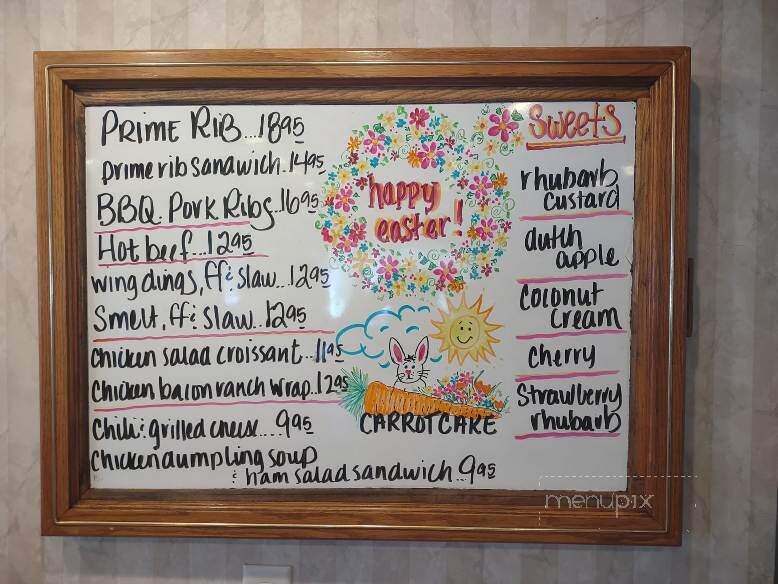 PRIME RIB...1895
prime rib sandwich.1495
BBQ. Pork Ribs..1695
Hot beef...1295
wing dings, ff & slaw...1295
Smelt, ff & slaw..1295
chicken salad croissant...1195
Chicken bacon ranch wrap.1295
Chili & grilled cheese....995
Chicken dumpling soup
& ham salad sandwich.995
happy
easter!
CARROT CAKE
Sweets
rhubarb
custard
dutch
apple
Coconut
Cream
cherry
Strawberry
rhubarb
menupix